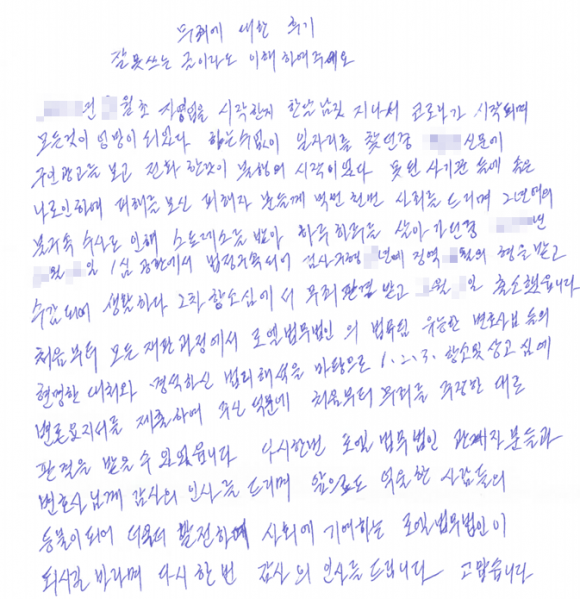 무죄에 대한 후기
잘못쓰는 글이라도 이해하여주세요
년 월초 자영업을 시작한지 한달남짓 지나서 코로나가 시작되며
모든것이 엉망이 되었다 하는수없이 일자리를 찾던중 신문에
구인광고를 보고 전화 한것이 불행의 시작이었다 못된 사기꾼 들에 속은
나로인하여 피해를 보신 피해자 분들께 먼저 한번 사죄를 드리며 2년여의
불구속 수사로 인해 스트레스를 받아 하루하루를 살아가던중 년
월 일 1심 공판에서 법정구속되어 검사구형 년에 징역 월의 형을 받고
수감되어 생활하다 2차 항소심에서 무죄판결받고 월 일 출소했읍니다
처음부터 모든 재판과정에서 로엘법무법인의 법무팀 유능한 변호사님 들의
현명한 대처와 해석을 바탕으로 1.2.3. 항소및 상고심에
변론요지서를 제출하여 주신 덕분에 처음부터 무죄를 주장한 대로
판결을 받을수 있었읍니다 다시한번 로엘 법무법인 관계자분들과
변호사님께 감사의 인사를 드리며 앞으로도 억울한 사람들의
등불이되어 더욱더 발전하며 사회에 기여하는 로엘법무법인이
되시길 바라며 다시한번 감사의 인사를드립니다 고맙습니다